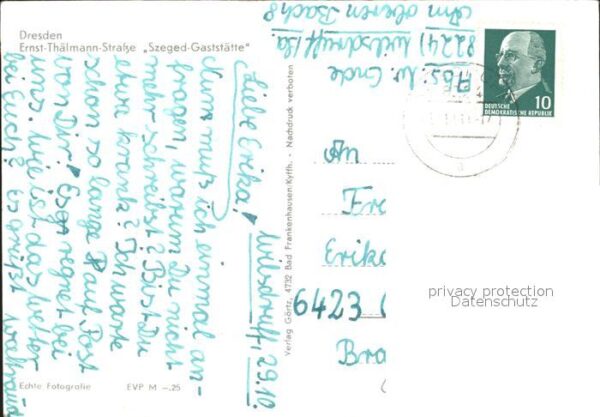 Dresden
Ernst-Thälmann-Straße „Szeged-Gaststätte"
Wilsdruff, 29.10.
Liebe Erika!
Nun muß ich einmal an-
fragen, warum Du nicht
mehr schreibst? Bist Du
etwa krank? Ich warte
schon so lange auf Post
von Dir! Es regnet bei
uns. Wie ist das Wetter
bei Euch? Es grüßt
Waltraud
Echte Fotografie EVP M –.25
Verlag Görtz, 4732 Bad Frankenhausen/Kyffh. • Nachdruck verboten
Abs. W.
8224) Wilsdruff
Am oberen Bach 8
DEUTSCHE
DEMOKRATISCHE REPUBLIK
10
An
Fre
Erika
6423
Bra
privacy protection
Datenschutz